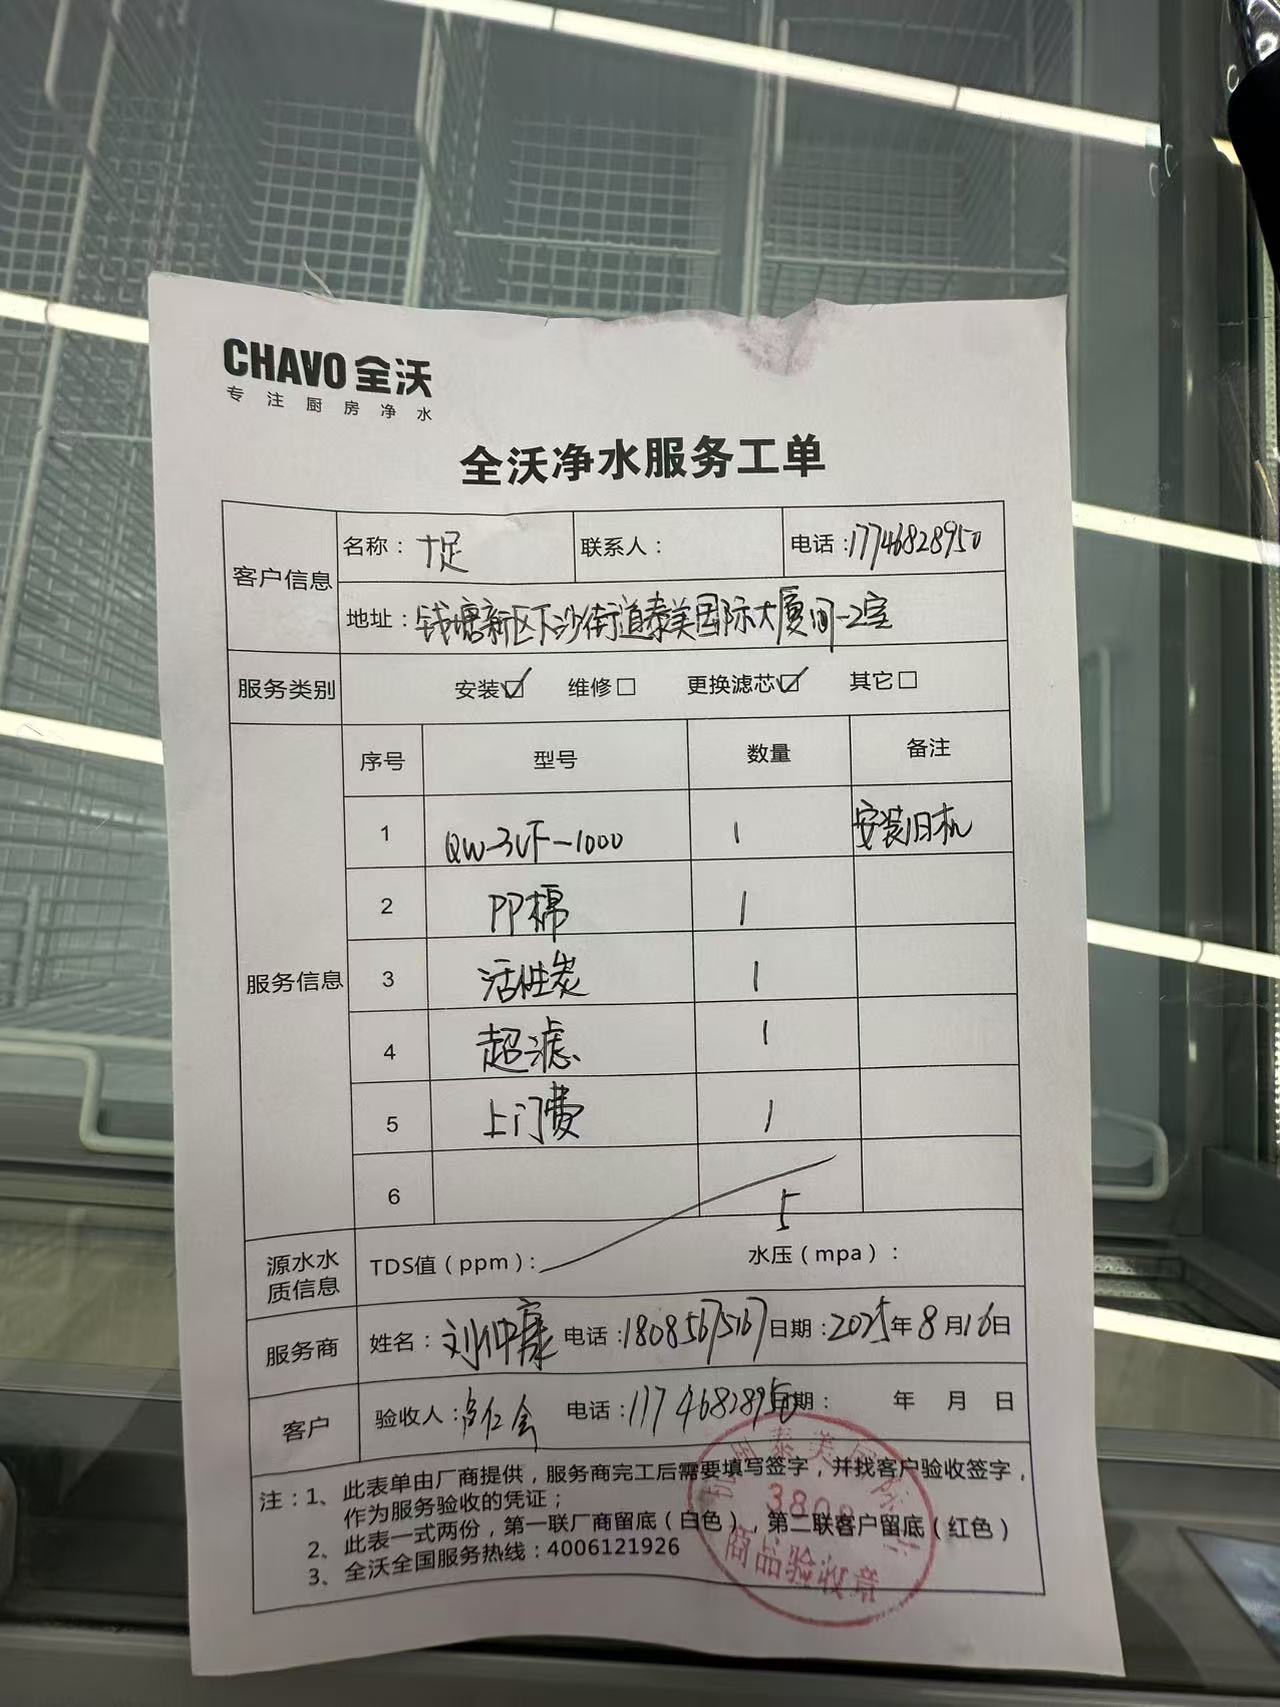 CHAVO 全沃
专注厨房净水
全沃净水服务工单
客户信息
名称：十足 联系人： 电话：17746828950
地址：钱塘新区下沙街道泰美国际大厦间-2室
服务类别 安装☑ 维修□ 更换滤芯☑ 其它□
服务信息
序号 型号 数量 备注
1 QW-3UF-1000 1 安装旧机
2 PP棉 1
3 活性炭 1
4 超滤 1
5 上门费 1
6 5
源水水质信息 TDS值（ppm）： 水压（mpa）：
服务商 姓名：刘仲康 电话：18085675167 日期：2025年8月16日
客户 验收人： 电话：17746828950 日期： 年 月 日
注：1、此表单由厂商提供，服务商完工后需要填写签字，并找客户验收签字，
作为服务验收的凭证；
2、此表一式两份，第一联厂商留底（白色），第二联客户留底（红色）
3、全沃全国服务热线：4006121926
泰美国际
商品验收章